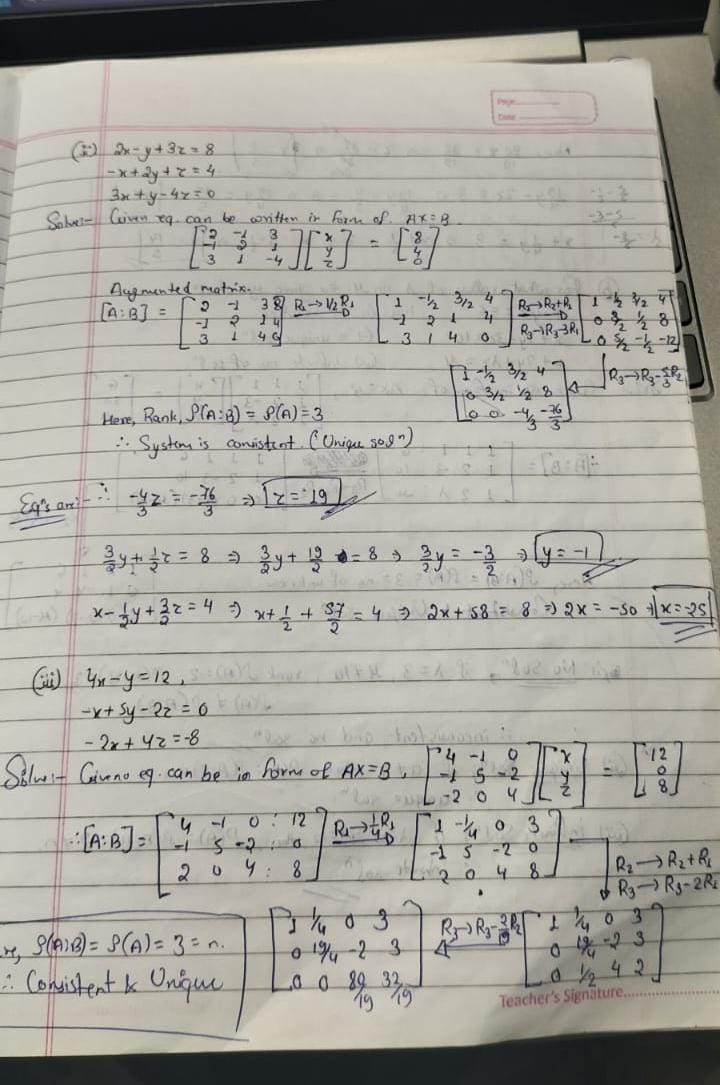 Page
Date
(ii) 2x-y+3z=8
-x+2y+z=4
3x+y-4z=0
Solve:- Given eq. can be written in form of AX=B
[2 -1 3; -1 2 1; 3 1 -4] [x; y; z] = [8; 4; 0]
Augmented matrix.
[A:B] = [2 -1 3 8; -1 2 1 4; 3 1 4 0] R₁→½R₁ [1 -½ 3/2 4; -1 2 1 4; 3 1 4 0] R₂→R₂+R₁ R₃→R₃-3R₁ [1 -½ 3/2 4; 0 3/2 ½ 8; 0 5/2 -½ -12]
R₃→R₃-5/3R₂ [1 -½ 3/2 4; 0 3/2 ½ 8; 0 0 -4/3 -76/3]
Here, Rank, ρ(A:B) = ρ(A) = 3
∴ System is consistent. (Unique solⁿ)
Eqⁿs are:- ∴ -4/3 z = -76/3 ⇒ z = 19
3/2 y + 1/2 z = 8 ⇒ 3/2 y + 19/2 = 8 ⇒ 3/2 y = -3/2 ⇒ y = -1
x - 1/2 y + 3/2 z = 4 ⇒ x + 1/2 + 57/2 = 4 ⇒ 2x + 58 = 8 ⇒ 2x = -50 ⇒ x = -25
(iii) 4x-y=12,
-x+5y-2z=0
-2x+4z=-8
Solve:- Given eq. can be in form of AX=B, [4 -1 0; -1 5 -2; -2 0 4] [x; y; z] = [12; 0; 8]
∴[A:B] = [4 -1 0 : 12; -1 5 -2 : 0; 2 0 4 : 8] R₁→¼R₁ [1 -¼ 0 3; -1 5 -2 0; 2 0 4 8]
R₂→R₂+R₁
R₃→R₃-2R₁
[1 ¼ 0 3; 0 19/4 -2 3; 0 ½ 4 2] R₃→R₃-2/19R₂ [1 ¼ 0 3; 0 19/4 -2 3; 0 0 80/19 32/19]
re, ρ(A:B) = ρ(A) = 3 = n.
∴ Consistent & Unique
Teacher's Signature